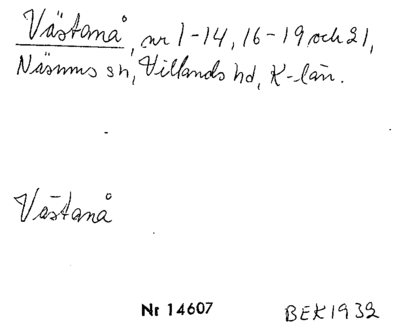 Västanå, nr 1-14, 16-19 och 21,
Näsums sn, Villands hd, K-län.
Västanå
Nr 14607 BEK 1932